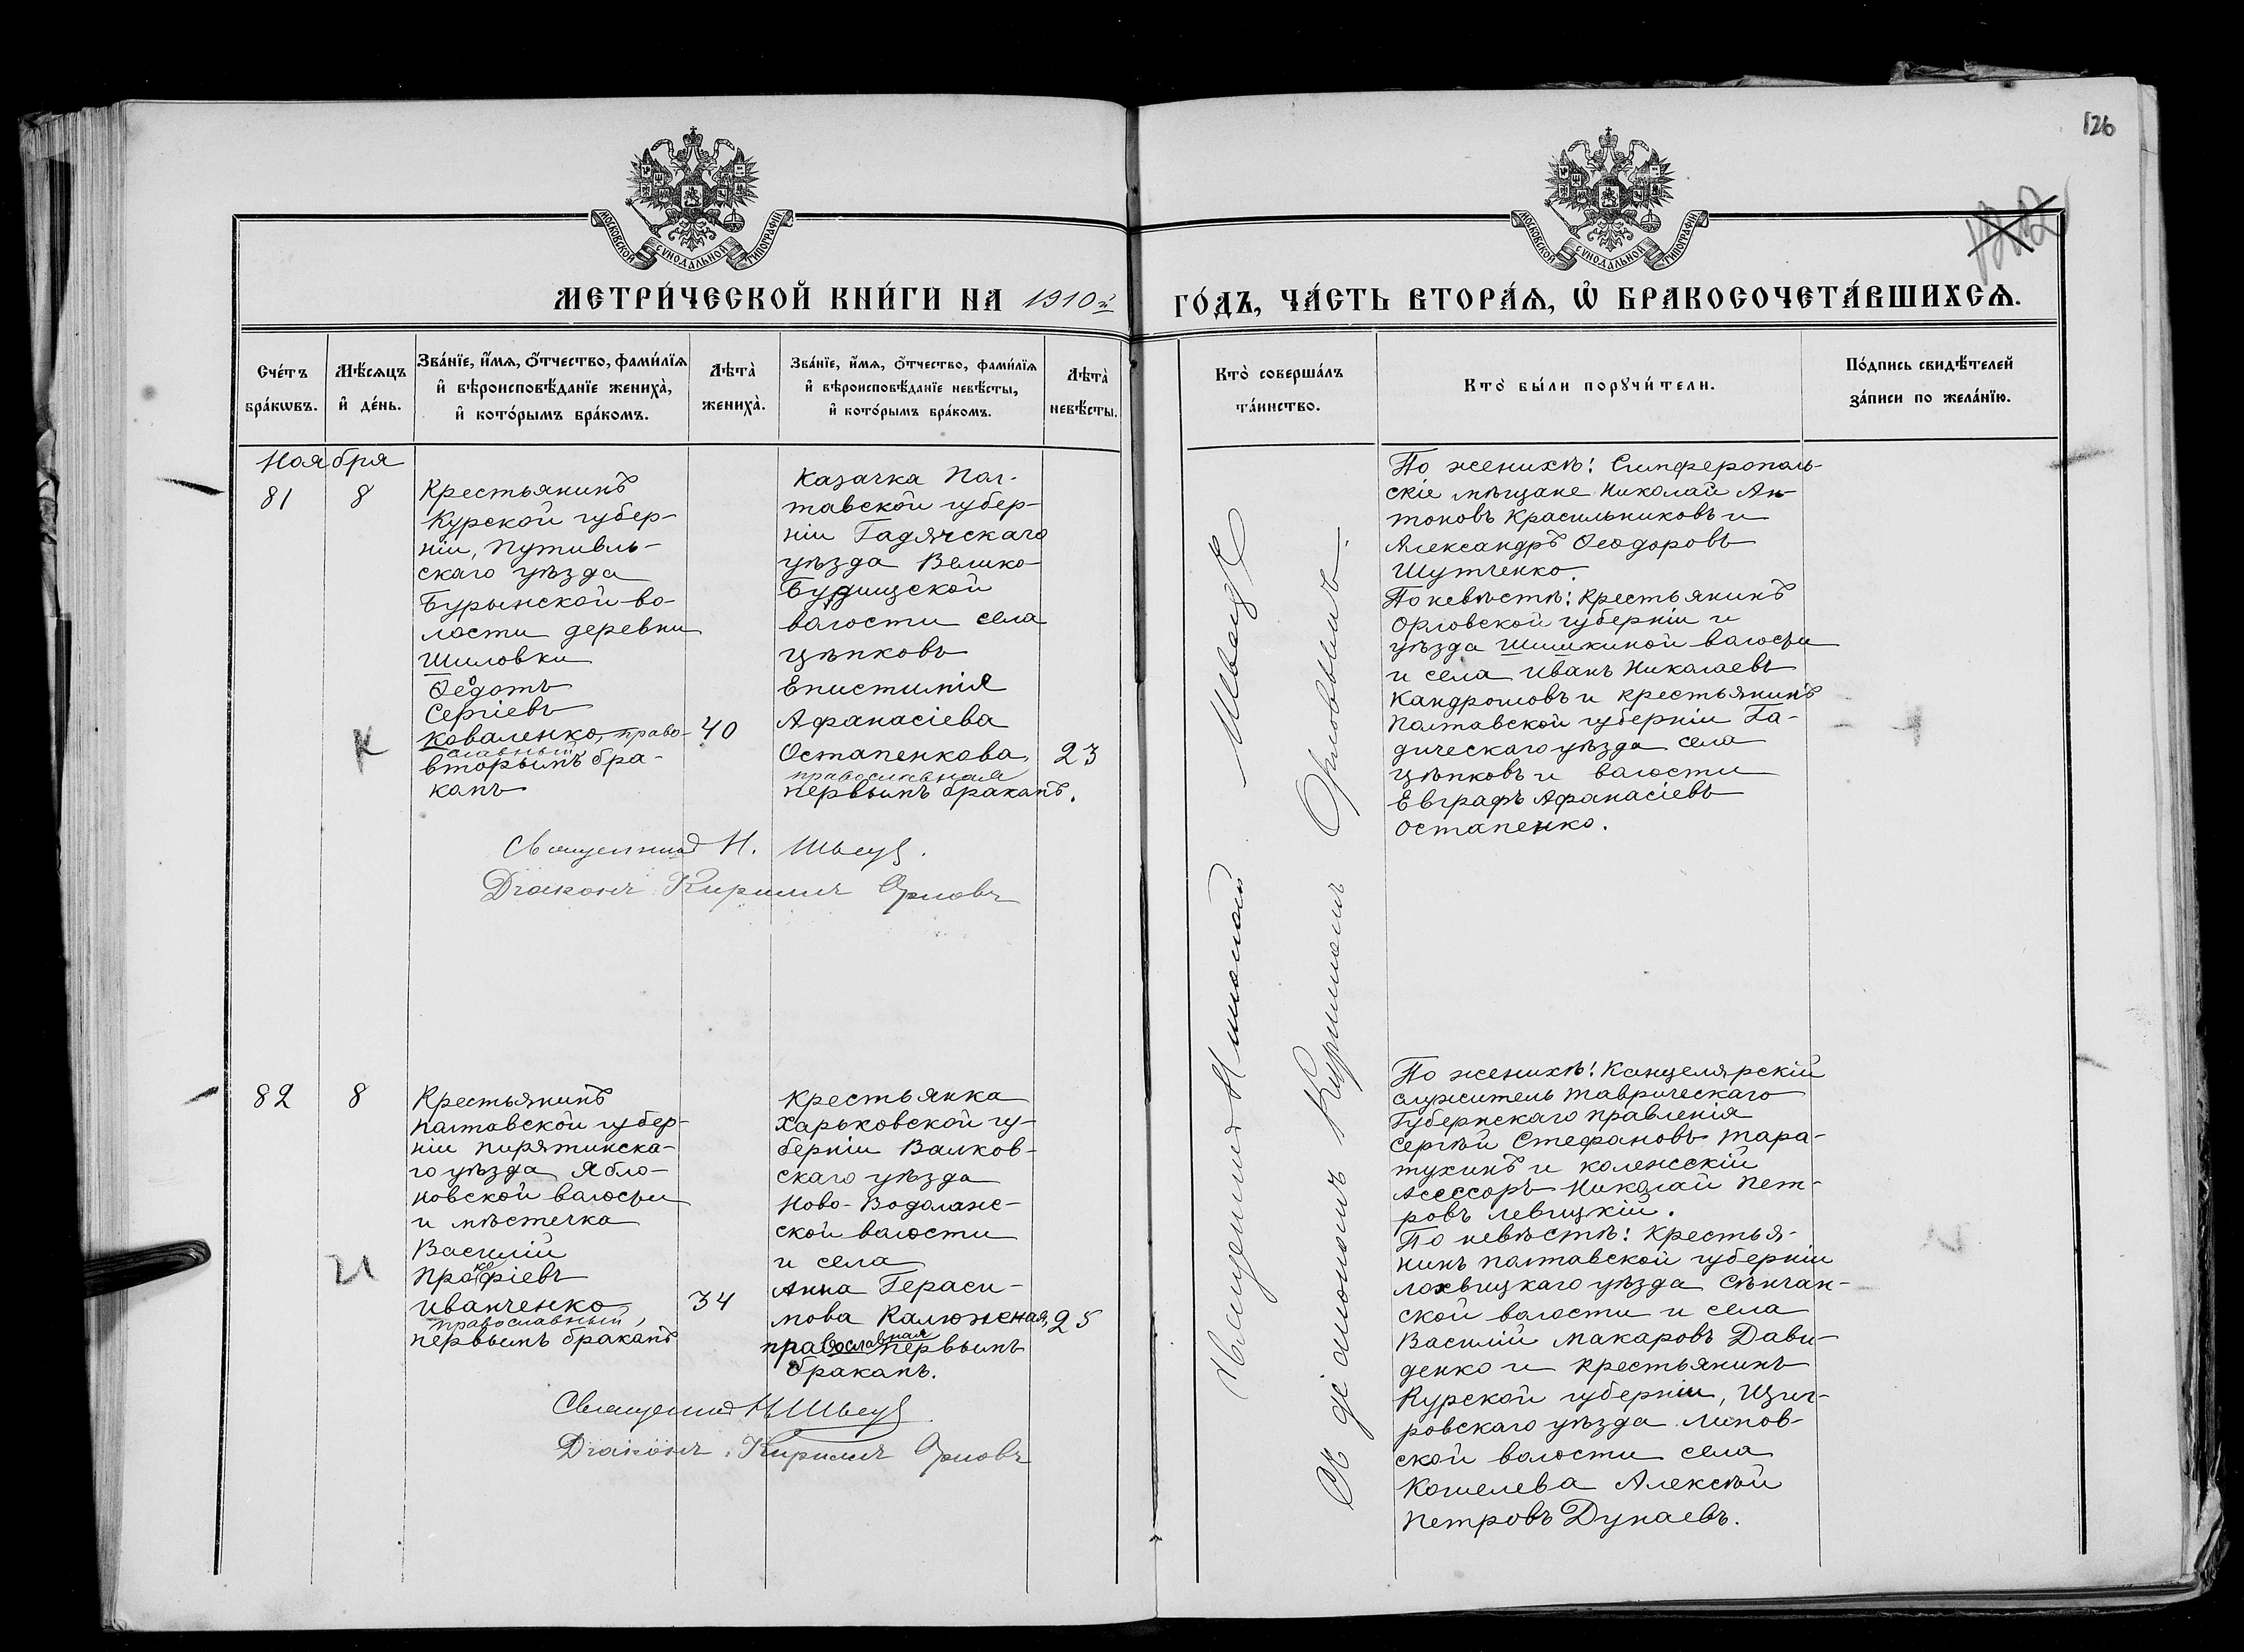 126
МОСКОВСКОЙ СѴНОДАЛЬНОЙ ТИПОГРАФІИ
МОСКОВСКОЙ СѴНОДАЛЬНОЙ ТИПОГРАФІИ
МЕТРИ́ЧЕСКОЙ КНИ́ГИ НА 1910й ГО́ДЪ, ЧА́СТЬ ВТОРА́Ѧ, Ѡ҆ БРАКОСОЧЕТА́ВШИХСѦ.
Сче́тъ
бра́кѡвъ.
Мѣ́сѧцъ
и҆ де́нь.
Зва́нїе, и҆́мѧ, ѻ҆́тчество, фами́лїѧ
и҆ вѣроисповѣ́данїе жениха̀,
и҆ кото́рымъ бра́комъ.
Лѣта̀
жениха̀.
Зва́нїе, и҆́мѧ, ѻ҆́тчество, фами́лїѧ
и҆ вѣроисповѣ́данїе невѣ́сты,
и҆ кото́рымъ бра́комъ.
Лѣта̀
невѣ́сты.
Кто̀ соверша́лъ
та́инство.
Кто̀ бы́ли порꙋчи́тели.
По́дпись свидѣ́телей
за́писи по жела́нїю.
Ноября
81
8
Крестьянинъ
Курской губер-
ніи, Путивль-
скаго уѣзда
Бурынской во-
лости деревни
Шиловки
Ѳедотъ
Сергіевъ
Коваленко, право-
славный,
вторымъ бра-
комъ
40
Казачка Пол-
тавской губер-
ніи Гадячскаго
уѣзда Велико-
Будищской
волости села
Цѣпковъ
Епистимія
Афанасіева
Остапенкова,
православная
первымъ бракомъ.
23
Священникъ Н. Швецъ.
Діаконъ Кириллъ Орловъ
Священникъ Николай Швецъ
Съ діакономъ Кирилломъ Орловымъ
По женихѣ: Симферополь-
скіе мѣщане Николай Ан-
тоновъ Красильниковъ и
Александръ Ѳеодоровъ
Шутченко.
По невѣстѣ: Крестьянинъ
Орловской губерніи и
уѣзда Шишкиной волости
и села Иванъ Николаевъ
Кандрошовъ и крестьянинъ
Полтавской губерніи Га-
дическаго уѣзда села
Цѣпковъ и волости
Евграфъ Афанасіевъ
Остапенко.
К
82
8
Крестьянинъ
Полтавской губер-
ніи Пирятинска-
го уѣзда Ябло-
новской волости
и мѣстечка
Василій
Прокофіевъ
Иванченко,
православный,
первымъ бракомъ
34
Крестьянка
Харьковской гу-
берніи Валков-
скаго уѣзда
Ново-Водолаж-
ской волости
и села
Анна Гераси-
мова Калюжная,
православная первымъ
бракомъ.
25
И
Священникъ Н Швецъ
Діаконъ: Кириллъ Орловъ
По женихѣ: Канцелярскій
служитель Таврическаго
Губернскаго правленія
Сергѣй Стефановъ Тара-
тухинъ и коллежскій
Асессоръ Николай Пет-
ровъ Левицкій.
По невѣстѣ: Крестья-
нинъ Полтавской губерніи
Лохвицкаго уѣзда Сѣнчан-
ской волости и села
Василій Макаровъ Дави-
денко и крестьянинъ
Курской губерніи, Щиг-
ровскаго уѣзда Липов-
ской волости села
Кошелева Алексѣй
Петровъ Дунаевъ.